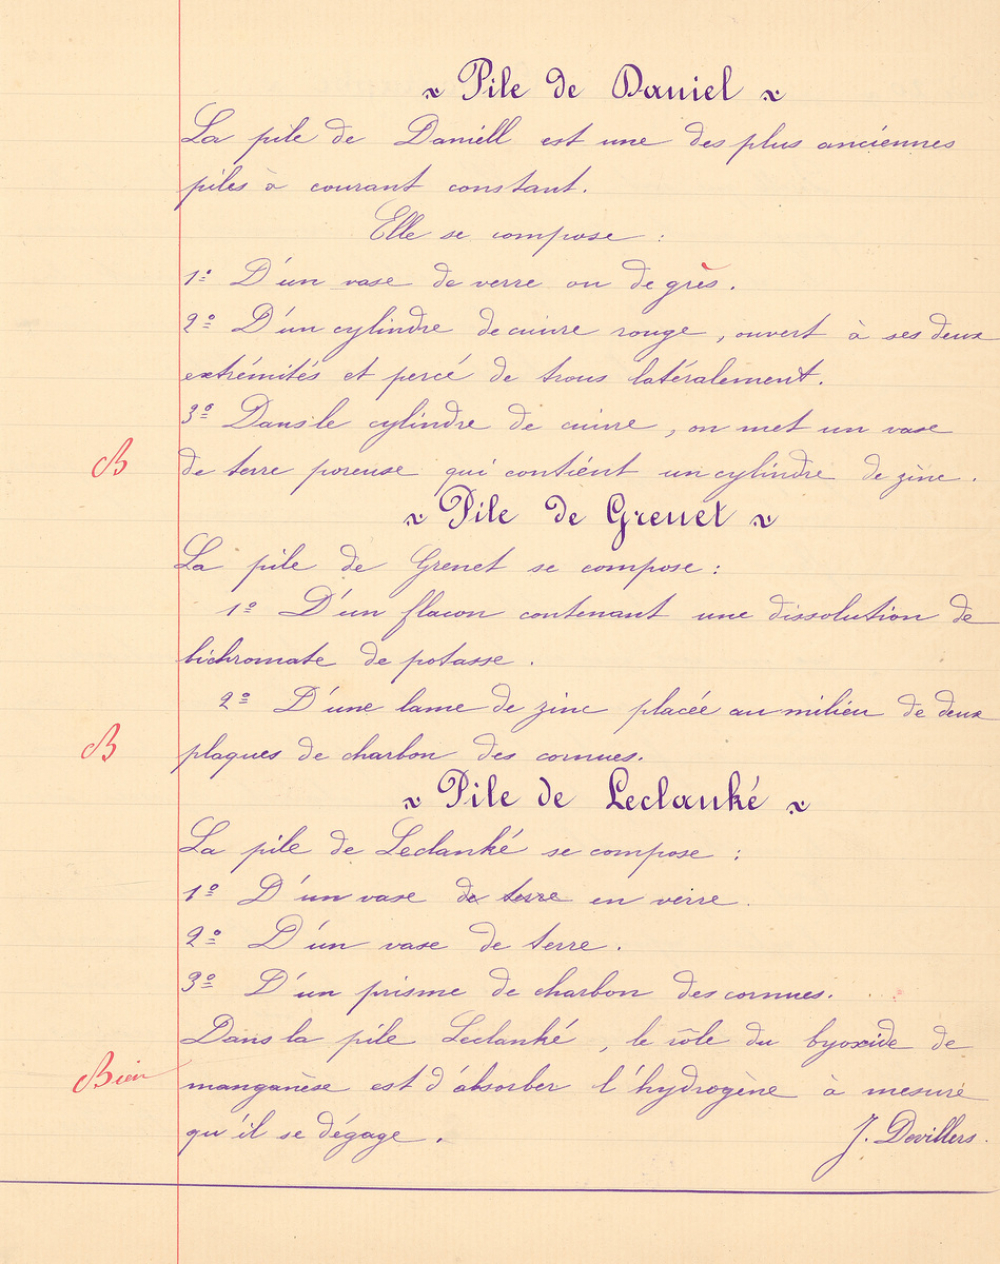 x Pile de Daniel x
La pile de Daniell est une des plus anciennes
piles à courant constant.
Elle se compose :
1º D'un vase de verre ou de grès.
2º D'un cylindre de cuivre rouge, ouvert à ses deux
extrémités et percé de trous latéralement.
3º Dans le cylindre de cuivre, on met un vase
B de terre poreuse qui contient un cylindre de zinc.
x Pile de Grenet x
La pile de Grenet se compose :
1º D'un flacon contenant une dissolution de
bichromate de potasse.
2º D'une lame de zinc placée au milieu de deux
B plaques de charbon des cornues.
x Pile de Leclanké x
La pile de Leclanké se compose :
1º D'un vase de terre en verre.
2º D'un vase de terre.
3º D'un prisme de charbon des cornues.
Dans la pile Leclanké, le rôle du byoxide de
Bien manganèse est d'absorber l'hydrogène à mesure
qu'il se dégage. J. Devillers.